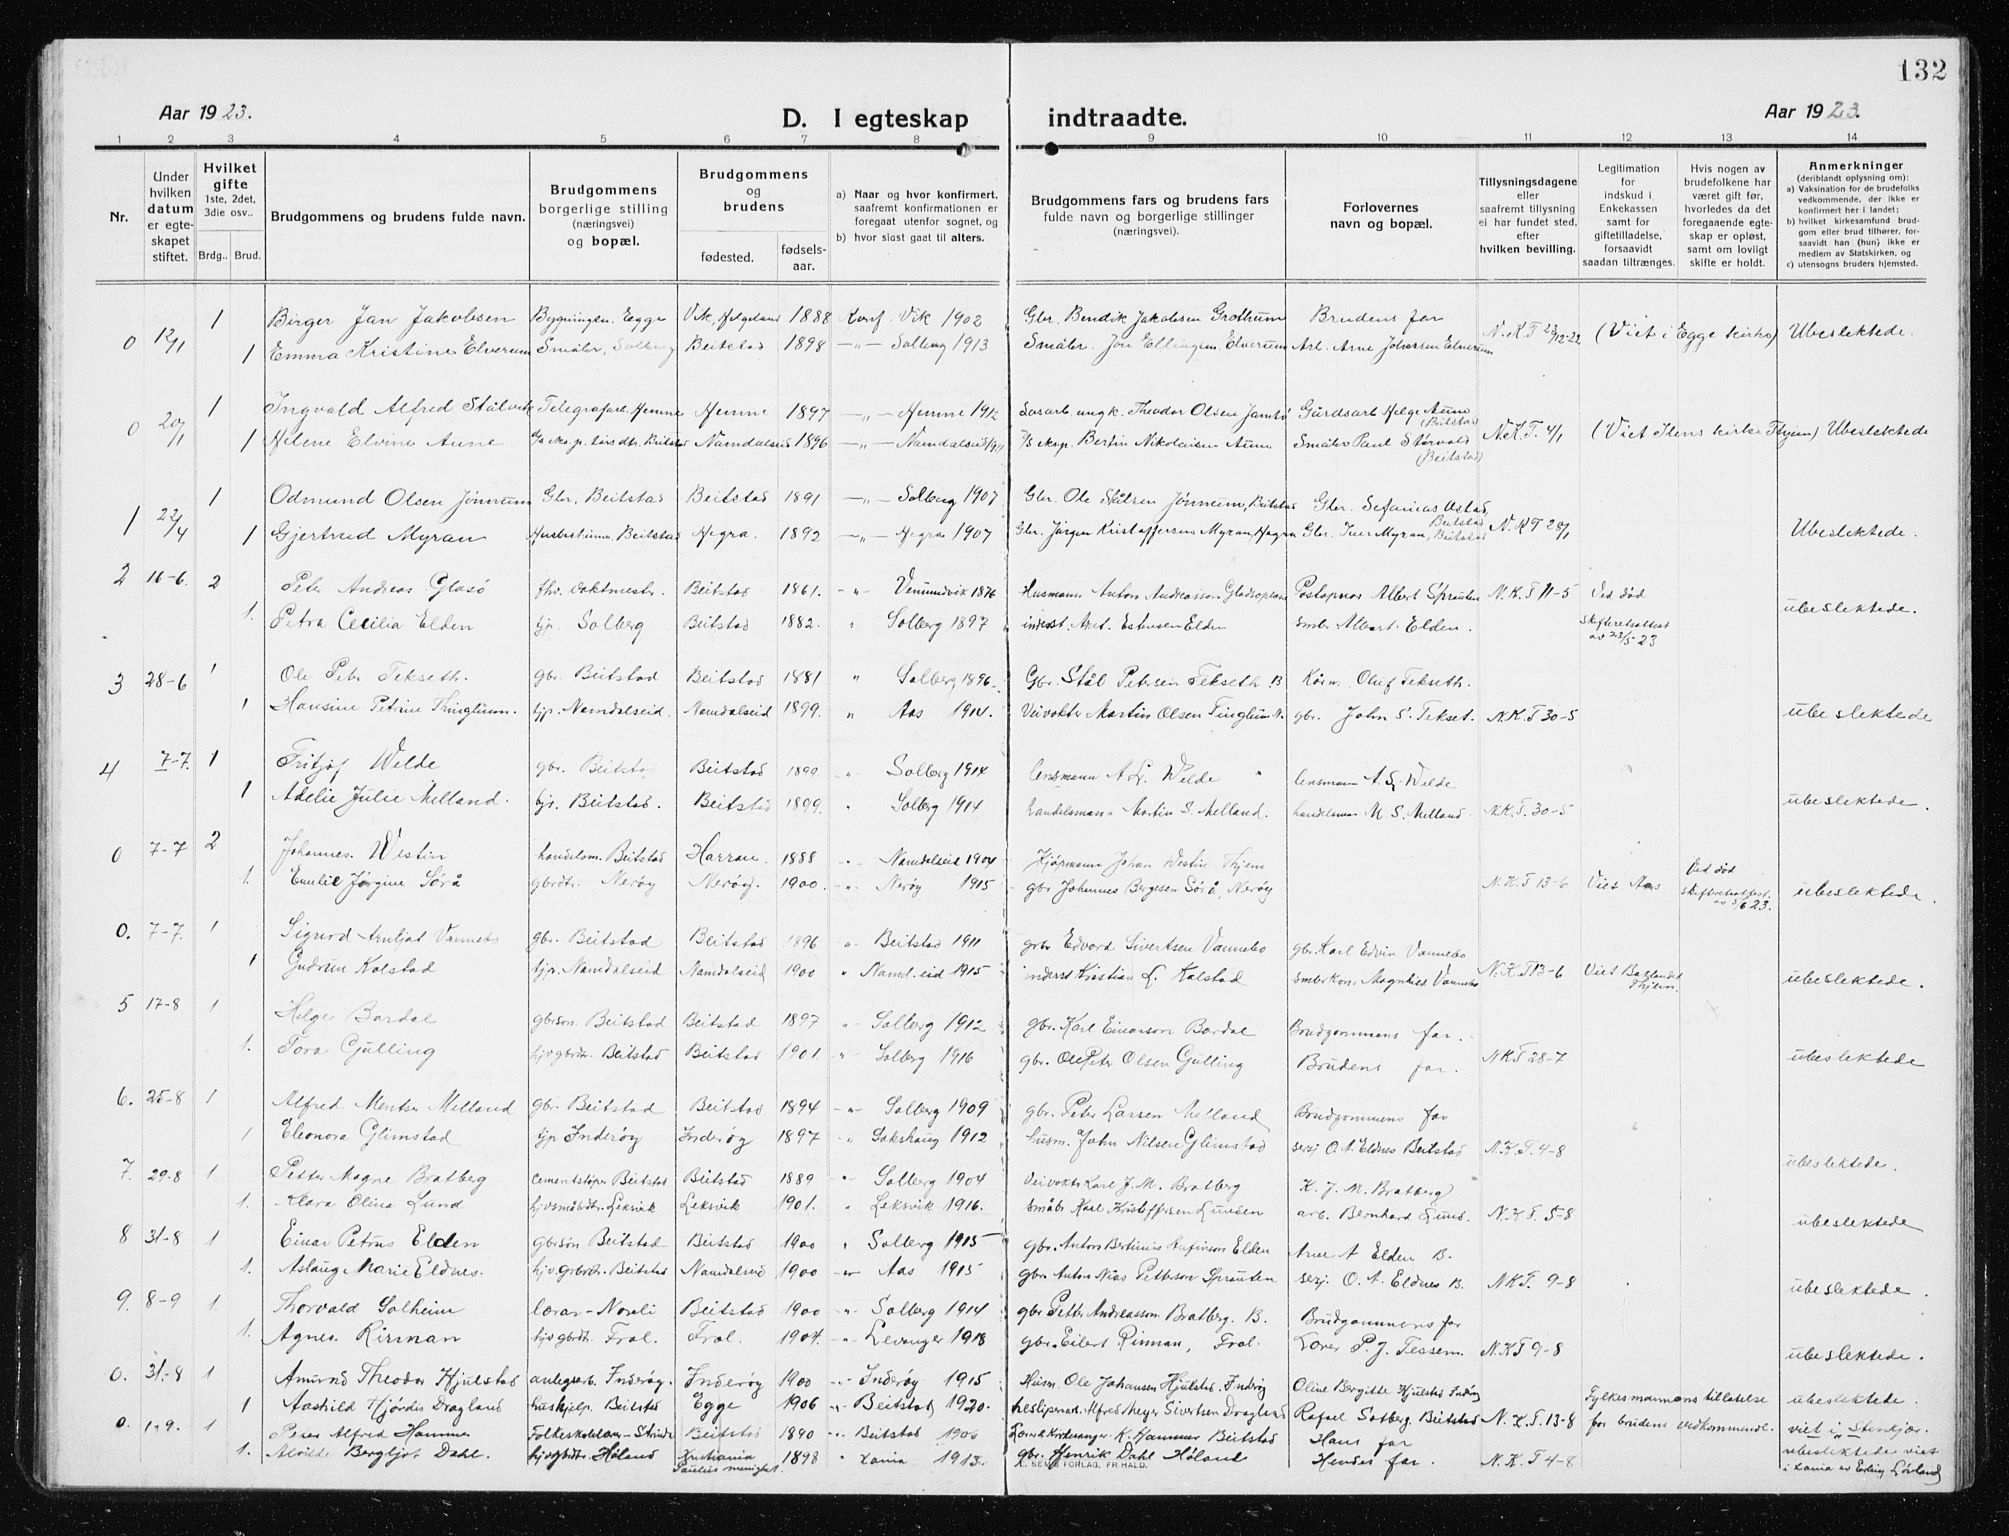 132
Aar 1923.
D. I egteskap indtraadte.
Aar 1923.
1 2 3 4 5 6 7 8 9 10 11 12 13 14
Nr.
Under hvilken datum er egteskapet stiftet.
Hvilket gifte 1ste, 2det, 3die osv..
Brdg.. Brud.
Brudgommens og brudens fulde navn.
Brudgommens borgerlige stilling (næringsvei) og bopæl.
Brudgommens og brudens
fødested. fødsels-aar.
a) Naar og hvor konfirmert, saafremt konfirmationen er foregaat utenfor sognet, og
b) hvor sidst gaat til alters.
Brudgommens fars og brudens fars fulde navn og borgerlige stillinger (næringsvei).
Forlovernes navn og bopæl.
Tillysningsdagene eller saafremt tillysning ei har fundet sted, efter hvilken bevilling.
Legitimation for indskud i Enkekassen samt for giftetilladelse, forsaavidt saadan tiltrænges.
Hvis nogen av brudefolkene har været gift før, hvorledes da det foregaaende egteskap er opløst, samt om lovligt skifte er holdt.
Anmerkninger (deriblandt oplysning om):
a) Vaksination for de brudefolks vedkommende, der ikke er konfirmert her i landet;
b) hvilket kirkesamfund brudgom eller brud tilhører, forsaavidt han (hun) ikke er medlem av Statskirken, og
c) utensogns bruders hjemsted.
0 12/1 1 Birger Jan Jakobsen Bygningsn. Egge Vik, Helgeland 1888 Konf. Vik 1902 Gbr. Bendik Jakobsen Brudens far
1 Emma Kristine Elverum Småbr, Solberg Beitstad 1898 —"— Solberg 1913 Småbr. Elverum Arb. Arne Johansen Elverum N.K.T 23/12-22 (Viet i Egge kirke) Ubeslektede.
0 20/1 1 Ingvald Alfred Telegrafarb. Hemne Hemne 1897 —"— Hemne 1912 Theodor Olsen Gårdsarb Helge Aune (Beitstad)
1 Helene Elvine Aune Beitstad Namdalseid 1896 —"— Namdalseid Bertin Nikolaisen Aune Småbr Paul (Beitstad) N.K.T. 4/1 (Viet Ilens kirke Thjem) Ubeslektede
1 22/4 1 Odmund Olsen Jønnum Gbr, Beitstad Beitstad 1891 —"— Solberg 1907 Gbr. Ole Jønnum, Beitstad Gbr. Beitstad
1 Gjertrud Myran Husbestinne, Beitstad Hegra. 1892 —"— Hegra 1907 Gbr. Jørgen Kristoffersen Myran, Hegra Gbr. Iver Myran, Beitstad N.K.T 28/1 Ubeslektede.
2 16-6. 2 Peter Andreas Glasø fhv. Beitstad 1861. -"- Vemundvik 1876 Husmann Anton Andreassen Albert Sprauten N.K.T 11-5 Ved død
1. Petra Cecilia Elden hjv. Solberg Beitstad 1882. " Solberg 1897 Elden smbr Albert Elden. Skifteretsattest av 23/5-23 ubeslektede.
3 28-6 1 Ole Peter Tekseth. gbr. Beitstad Beitstad 1881 " Solberg 1896. Gbr. Ståle Petersen Tekseth B Oluf Tekseth.
1 Hansine Petrine Thinglum. hjv. Namdalseid. Namdalseid 1899. " Aas 1914. Veivokter Martin Olsen Tinglum N. gbr. John S. Tekset. N.K.T 30-5 ubeslektede
4 7-7. 1 Fritjof Welde gbr. Beitstad Beitstad 1899 " Solberg 1914 lensmann A L. Welde lensmann A. L. Welde
1 Adelie Julie Melland. hjv. Beitstad. Beitstad 1899. " Solberg 1914 handelsmann Martin S. Melland. handelsman M. S. Melland N.K.T. 30-5 ubeslektede.
0 7-7 2 Johannes. Westin handelsm. Beitstad Harran. 1888 " Namdalseid 1904 Kjøpmann Johan Westin Thjem
1. Emilie Jørgine Sørå gbrdtr. Nerøy Nerøy. 1900. " Nerøy 1915 gbr Johannes Sørå, Nerøy N.K.T 13-6 Viet Aas Ved død Skifteretsattest. av 5/6 23. ubeslektede.
0. 7-7. 1 Sigurd Arnljot Vannebo gbr. Beitstad Beitstad 1896 " Beitstad 1911 gbr Edvard Sivertsen Vannebo gbr. Karl Edvin Vannebo
1 Gudrun Kolstad hjv. Namdalseid Namdalseid 1900 " Namd.eid 1915 inderst Kristian L. Kolstad smbrkone Magnhild Vannebo N.K.T 13-6 Viet Thjem. ubeslektede.
5 17-8 1 Helge Bardal gbrsøn. Beitstad Beitstad 1897 " Solberg 1912 gbr. Karl Einarson Bardal Brudgommens far.
1. Tora Gulling hjv gbrdtr. Beitstad Beitstad 1901. " Solberg 1916 gbr. Ole Peter Olsen Gulling Brudens far. N.K.T 28-7 ubeslektede
6. 25-8 1 Alfred Mentser Melland gbr. Beitstad Beitstad 1894 " Solberg 1909 gbr. Peter Larsen Melland Brudgommens far
1 Eleonora Glimstad hjv Inderøy Inderøy 1897 " Sakshaug 1912 husm. John Nilsen Glimstad O. A. Eldnes Beitstad N.K.T. 4-8 ubeslektede.
7. 29-8 1 Petter Magne Bratberg cementstøper Beitstad Beitstad 1889 " Solberg 1904 Veivokter Karl J. M. Bratberg K. J. M. Bratberg
1. Klara Olina Lund Leksvik Leksvik 1901. " Leksvik 1916. småbr Karl Kristoffersen arb. Bernhard Lund. N.K.T. 5-8 ubeslektede
8 31-8 1 Einar Petrus Elden gbrsøn Beitstad Beitstad 1900 " Solberg 1915 gbr. Anton Bertinius Elden Arne A Elden B.
1. Aslaug Marie Eldnes. hjv. gbrdtr. Beitstad Namdalseid 1900 " Aas 1915 gbr. Anton Petterson Sprauten O. A. Eldnes B. N.K.T. 9-8 ubeslektede.
9. 8-9 1. Thorvald Solheim lærer - Norli Beitstad 1900 " Solberg 1914 gbr Petter Andreassen Bratberg. B. Brudgommens far
1. Agnes Rinnan hjv gbrdtr. Frol. Frol. 1904. " Levanger 1918 gbr. Eilert Rinnan, Frol. Lærer P. J. Tessem. N.K.T 9-8 ubeslektede.
0. 31-8 1 Amund Theodor Hjulstad anlegsarb. Inderøy. Inderøy 1900 " Inderøy 1915 Husm. Ole Johansen Hjulstad, Inderøy Oline Bergitte Hjulstad Inderøy Fylkesmannens tillatelse ubeslektede.
1 Aashild Hjørdis Dragland hushjelp Beitstad Egge 1906 " Beitstad 1920. Alfred Meyer Sivertsen Dragland Rafael Solberg. Beitstad N.K.T. 13-8 for brudens vedkommende. viet i Stenkjær.
0. 1-9. 1 Peter Alfred Hammer Folkeskolelærer - Strinda Beitstad 1890 " Beitstad 1906 Lærer & kirkesanger K. Hammer Beitstad Hans far ubeslektede viet
1. Alvilde Bergljot Dahl. hjv gbrdtr. Høland Kristiania Paulus menighet. 1898 " Xania 1913. gbr. Henrik Dahl Høland Hendes far. N.K.T 4-8 i Xania av Erling Grønland
SEMS FORLAG, FR.HALD.